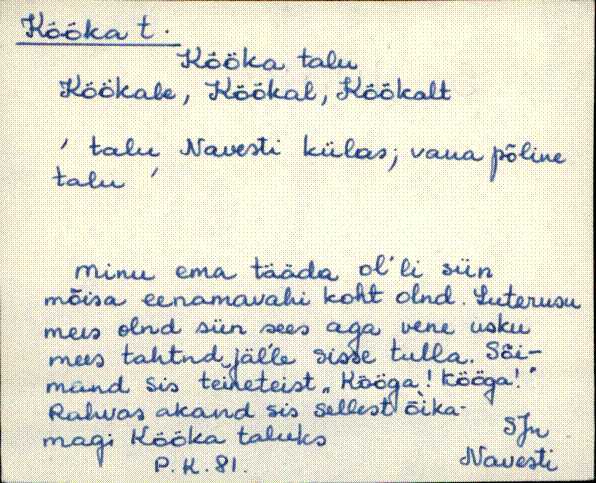 Kööka t.
Kööka talu
Köökale, Köökal, Köökalt
' talu Navesti külas; vana põline
talu '
minu ema tääda ol'li siin
mõisa eenamavahi koht olnd. Luterusu
mees olnd siin sees aga vene usku
mees tahtnd jälle sisse tulla. Sõi-
mand sis teineteist „Kööga! kööga!"
Rahvas akand sis sellest õika-
magi Kööka taluks
SJn
P.K.81. Navesti